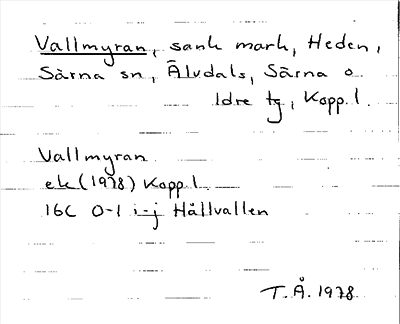 Vallmyran, sank mark, Heden,
Särna sn, Älvdals, Särna o
Idre tg, Kopp. l.
Vallmyran
ek (1978) Kopp. l.
16C 0-1 i-j Hållvallen
T.Å. 1978